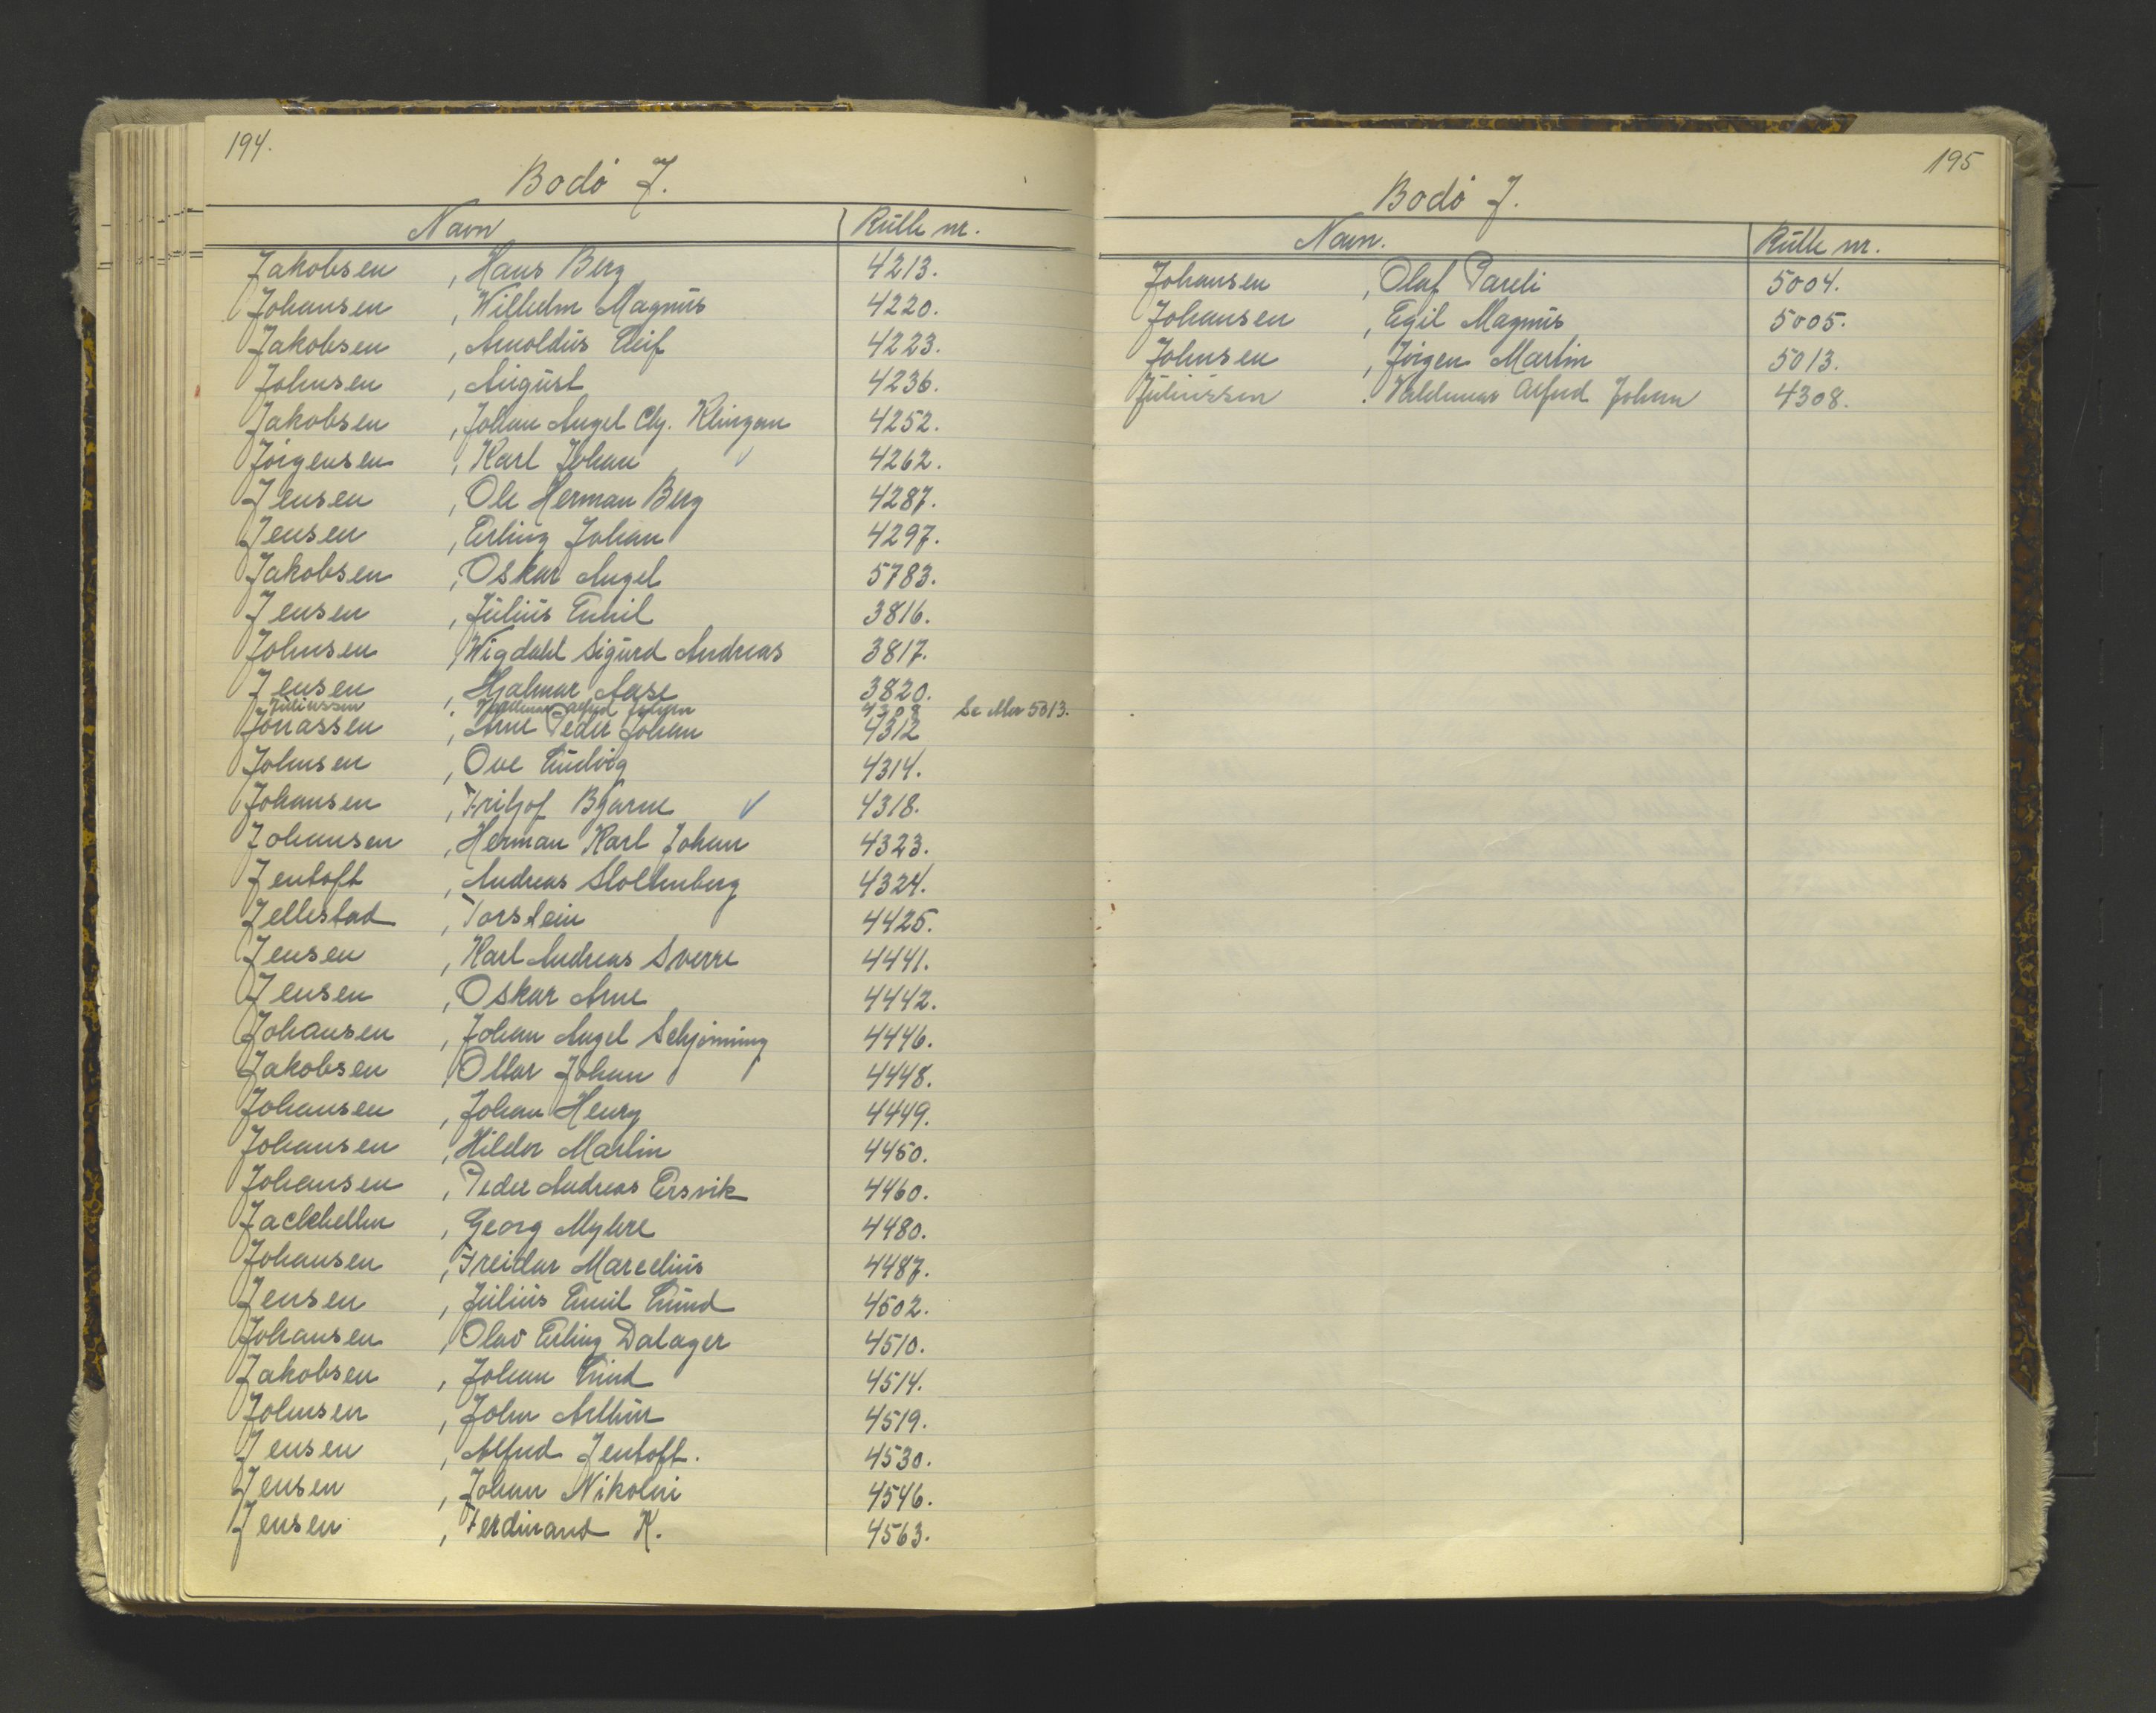 194.
Bodø J.
Navn Rulle nr.
Jakobsen , Hans Berg 4213.
Johansen , Wilhelm Magnus 4220.
Jakobsen , Arnoldus Leif 4223.
Johnsen , August 4236.
Jakobsen , Johan Angel Chr. Klingan 4252.
Jörgensen , Karl Johan 4262.
Jensen , Ole Herman Berg 4287.
Jensen , Erling Johan 4297.
Jakobsen , Oskar Angel 5783.
Jensen , Julius Emil 3816.
Johnsen , Wigdahl Sigurd Andreas 3817.
Jensen , Hjalmar Aase 3820.
Juliussen , Valdemar Alfred Johan 4308 Se etter 5013.
Jonassen , Arne Peder Johan 4312
Johnsen , Ove Ludvig 4314.
Johansen , Fritjof Bjarne 4318.
Johansen , Herman Karl Johan 4323.
Jentoft , Andreas Stoltenberg 4324.
Jellestad , Torstein 4425.
Jensen , Karl Andreas Sverre 4441.
Jensen , Oskar Arne 4442.
Johansen , Johan Angel Schjønning 4446.
Jakobsen , Ottar Johan 4448.
Johansen , Johan Henry 4449.
Johansen , Hildor Martin 4450.
Johansen , Peder Andreas Ersvik 4460.
Jackhelln , Georg Myhre 4480.
Johansen , Freidar Marcelius 4487.
Jensen , Julius Emil Lund 4502.
Johansen , Olav Erling Dalager 4510.
Jakobsen , Johan Lind 4514.
Johnsen , John Arthur 4519.
Jensen , Alfred Jentoft. 4530.
Jensen , Johan Nikolai 4546.
Jensen , Ferdinand K. 4563.
195
Bodø J.
Navn. Rulle nr.
Johansen , Olaf Pareli 5004.
Johansen , Egil Magnus 5005.
Johnsen , Jörgen Martin 5013.
Juliussen , Valdemar Alfred Johan 4308.